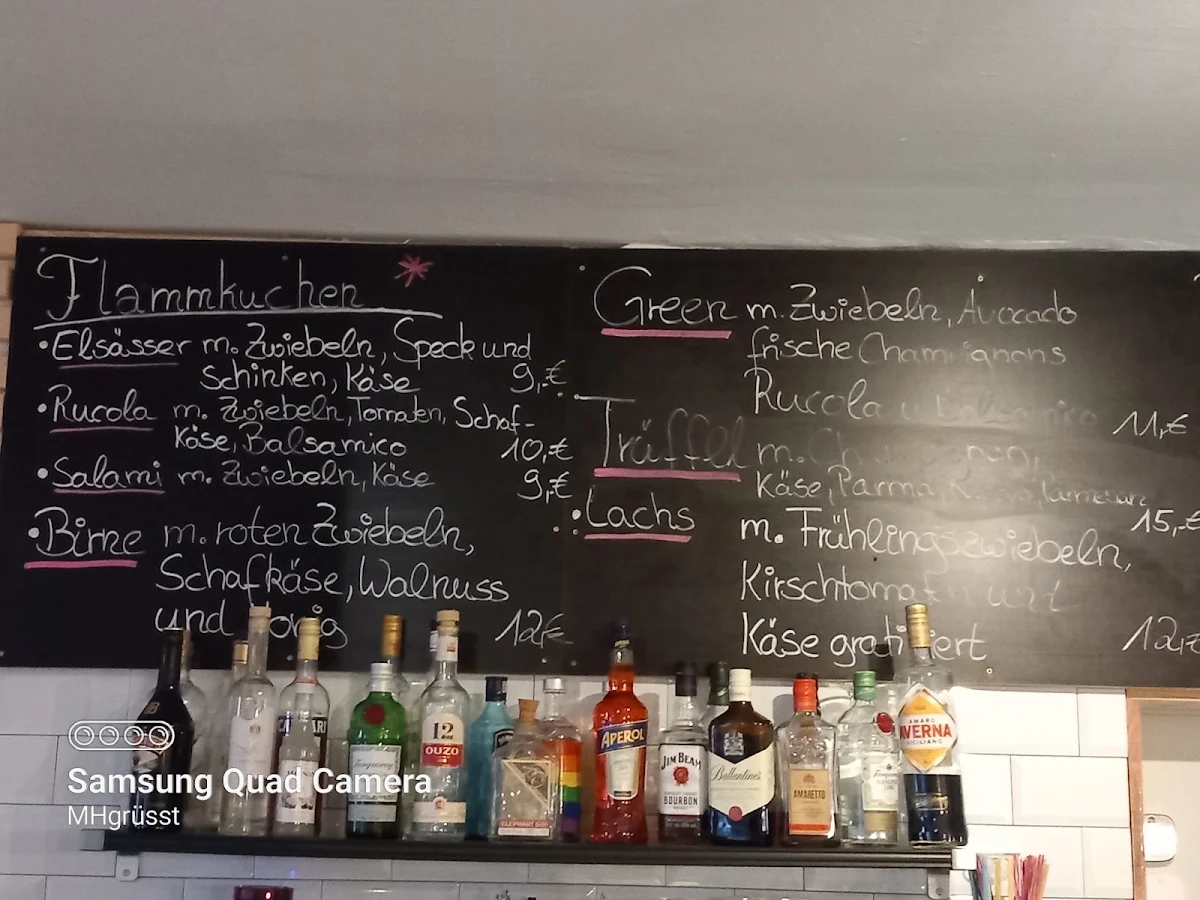 Flammkuchen *
• Elsässer m. Zwiebeln, Speck und
Schinken, Käse 9,-€
• Rucola m. Zwiebeln, Tomaten, Schaf-
Käse, Balsamico 10,€
• Salami m. Zwiebeln, Käse 9,€
• Birne m. roten Zwiebeln,
Schafkäse, Walnuss
und 12,€
Green m. Zwiebeln, Avocado
frische
Rucola 11,€
Träffel m.
Käse, Parma, 15,-€
• Lachs m. Frühlingszwiebeln,
Käse 12,-€
Tanqueray
12
OUZO
ELEPHANT GIN
APEROL
JIM BEAM
BOURBON
Ballantine's
AMARETTO
AMARO
AVERNA
SICILIANO
Samsung Quad Camera
MHgrüsst